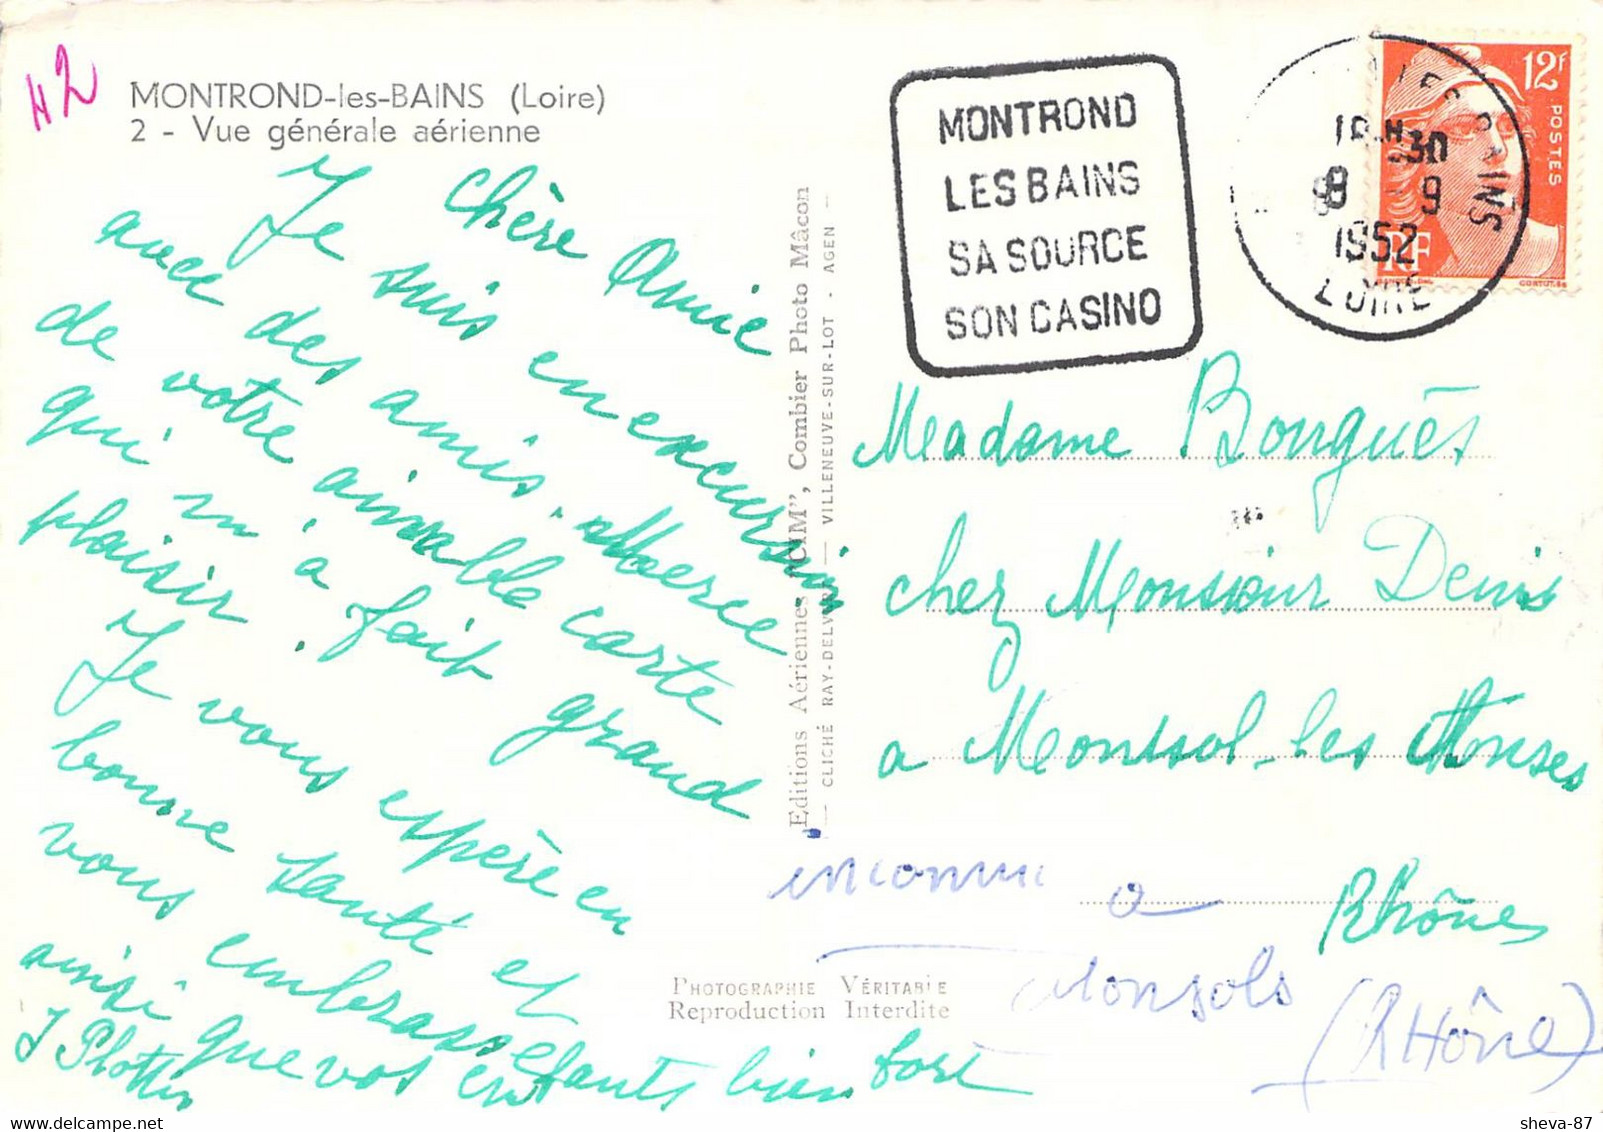 H2
MONTROND-les-BAINS (Loire)
2 - Vue générale aérienne
chère Amie
Je suis en excursion
avec des amis. Merce
de votre aimable carte
qui m'a fait grand
plaisir.
Je vous espère en
bonne santé et
vous embrasse
ainsi que vos enfants bien fort
J
Editions Aériennes "CIM", Combier Photo Mâcon
CLICHÉ RAY-DELVERT — VILLENEUVE-SUR-LOT - AGEN —
PHOTOGRAPHIE VÉRITABLE
Reproduction Interdite
MONTROND
LES BAINS
SA SOURCE
SON CASINO
BAINS
30
8 9
1952
LOIRE
12F
POSTES
RF
Madame Bougues
chez Monsieur Denis
a Monsol-les
Rhône
inconnue a
Monsols
(RHône)
sheva-87